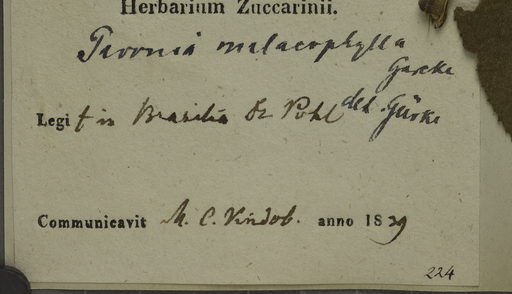 Herbarium Zuccarinii.
Pavonia malacophylla
Garcke
Legit in Brasilia Dr Pohl det. Gürke
Communicavit M. C. Vindob. anno 1839
224